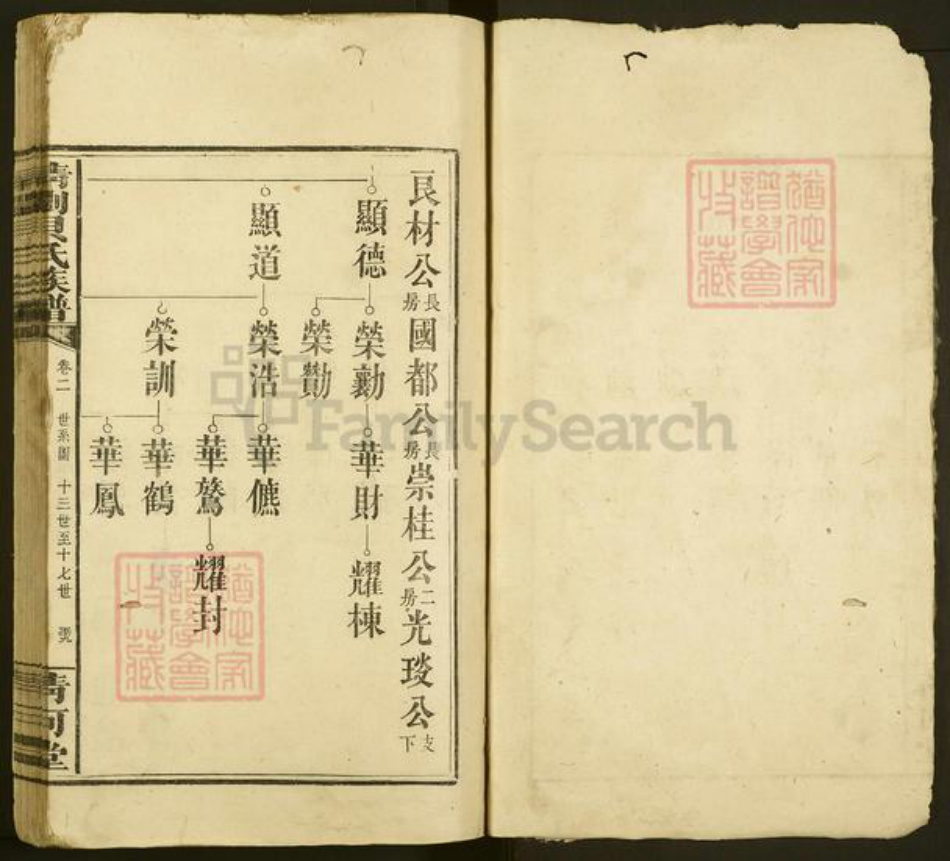 良材公長房國都公長房崇桂公二房光琰公支下
顯德
顯道
榮勷
榮勩
榮浩
榮訓
華財
華僬
華鶿
華鶴
華鳳
耀棟
耀封
貝氏族譜
卷二 世系圖 十三世至十七世
清河堂
猶他家譜學會收藏
猶他家譜學會收藏
FamilySearch